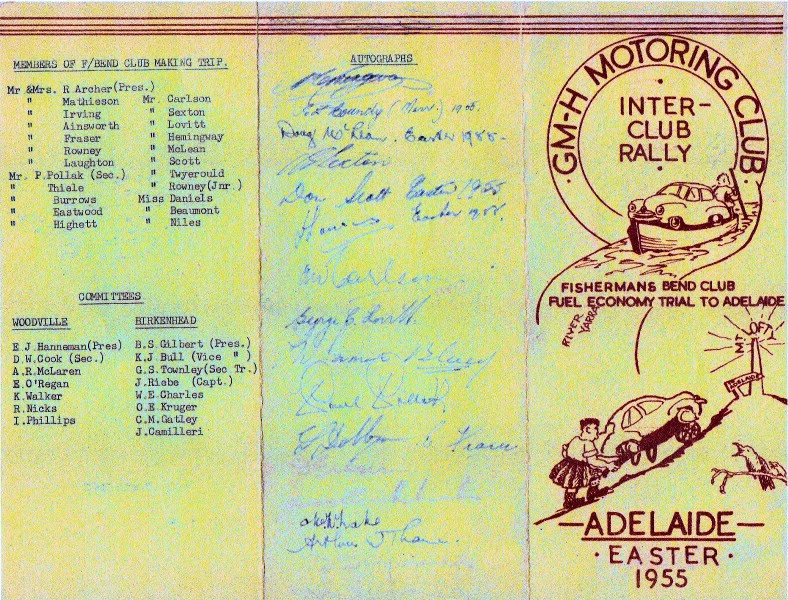 MEMBERS OF F/BEND CLUB MAKING TRIP.
Mr &Mrs. R Archer(Pres.)
" Mathieson
" Irving
" Ainsworth
" Fraser
" Rowney
" Laughton
Mr. P.Pollak (Sec.)
" Thiele
" Burrows
" Eastwood
" Highett
Mr. Carlson
" Sexton
" Lovitt
" Hemingway
" McLean
" Scott
" Twyerould
" Rowney(Jnr.)
Miss Daniels
" Beaumont
" Niles
COMMITTEES
WOODVILLE
E.J.Hanneman(Pres)
D.W.Cook (Sec.)
A.R.McLaren
E.O'Regan
K.Walker
R.Nicks
I.Phillips
BIRKENHEAD
B.S.Gilbert (Pres.)
K.J.Bull (Vice " )
G.S.Townley(Sec Tr.)
J.Riebe (Capt.)
W.E.Charles
O.E Kruger
C.M.Gatley
J.Camilleri
AUTOGRAPHS
Hemingway
1955.
Doug McLean. Easter 1955-
Sexton
Don Scott Easter 1955
Easter 1955.
Carlson
George E. Lovitt
Fraser
Arthur J
GM-H MOTORING CLUB
INTER-
CLUB
RALLY
FISHERMANS BEND CLUB
FUEL ECONOMY TRIAL TO ADELAIDE
RIVER YARRA
MT LOFTY
ADELAIDE
—ADELAIDE—
·EASTER·
1955